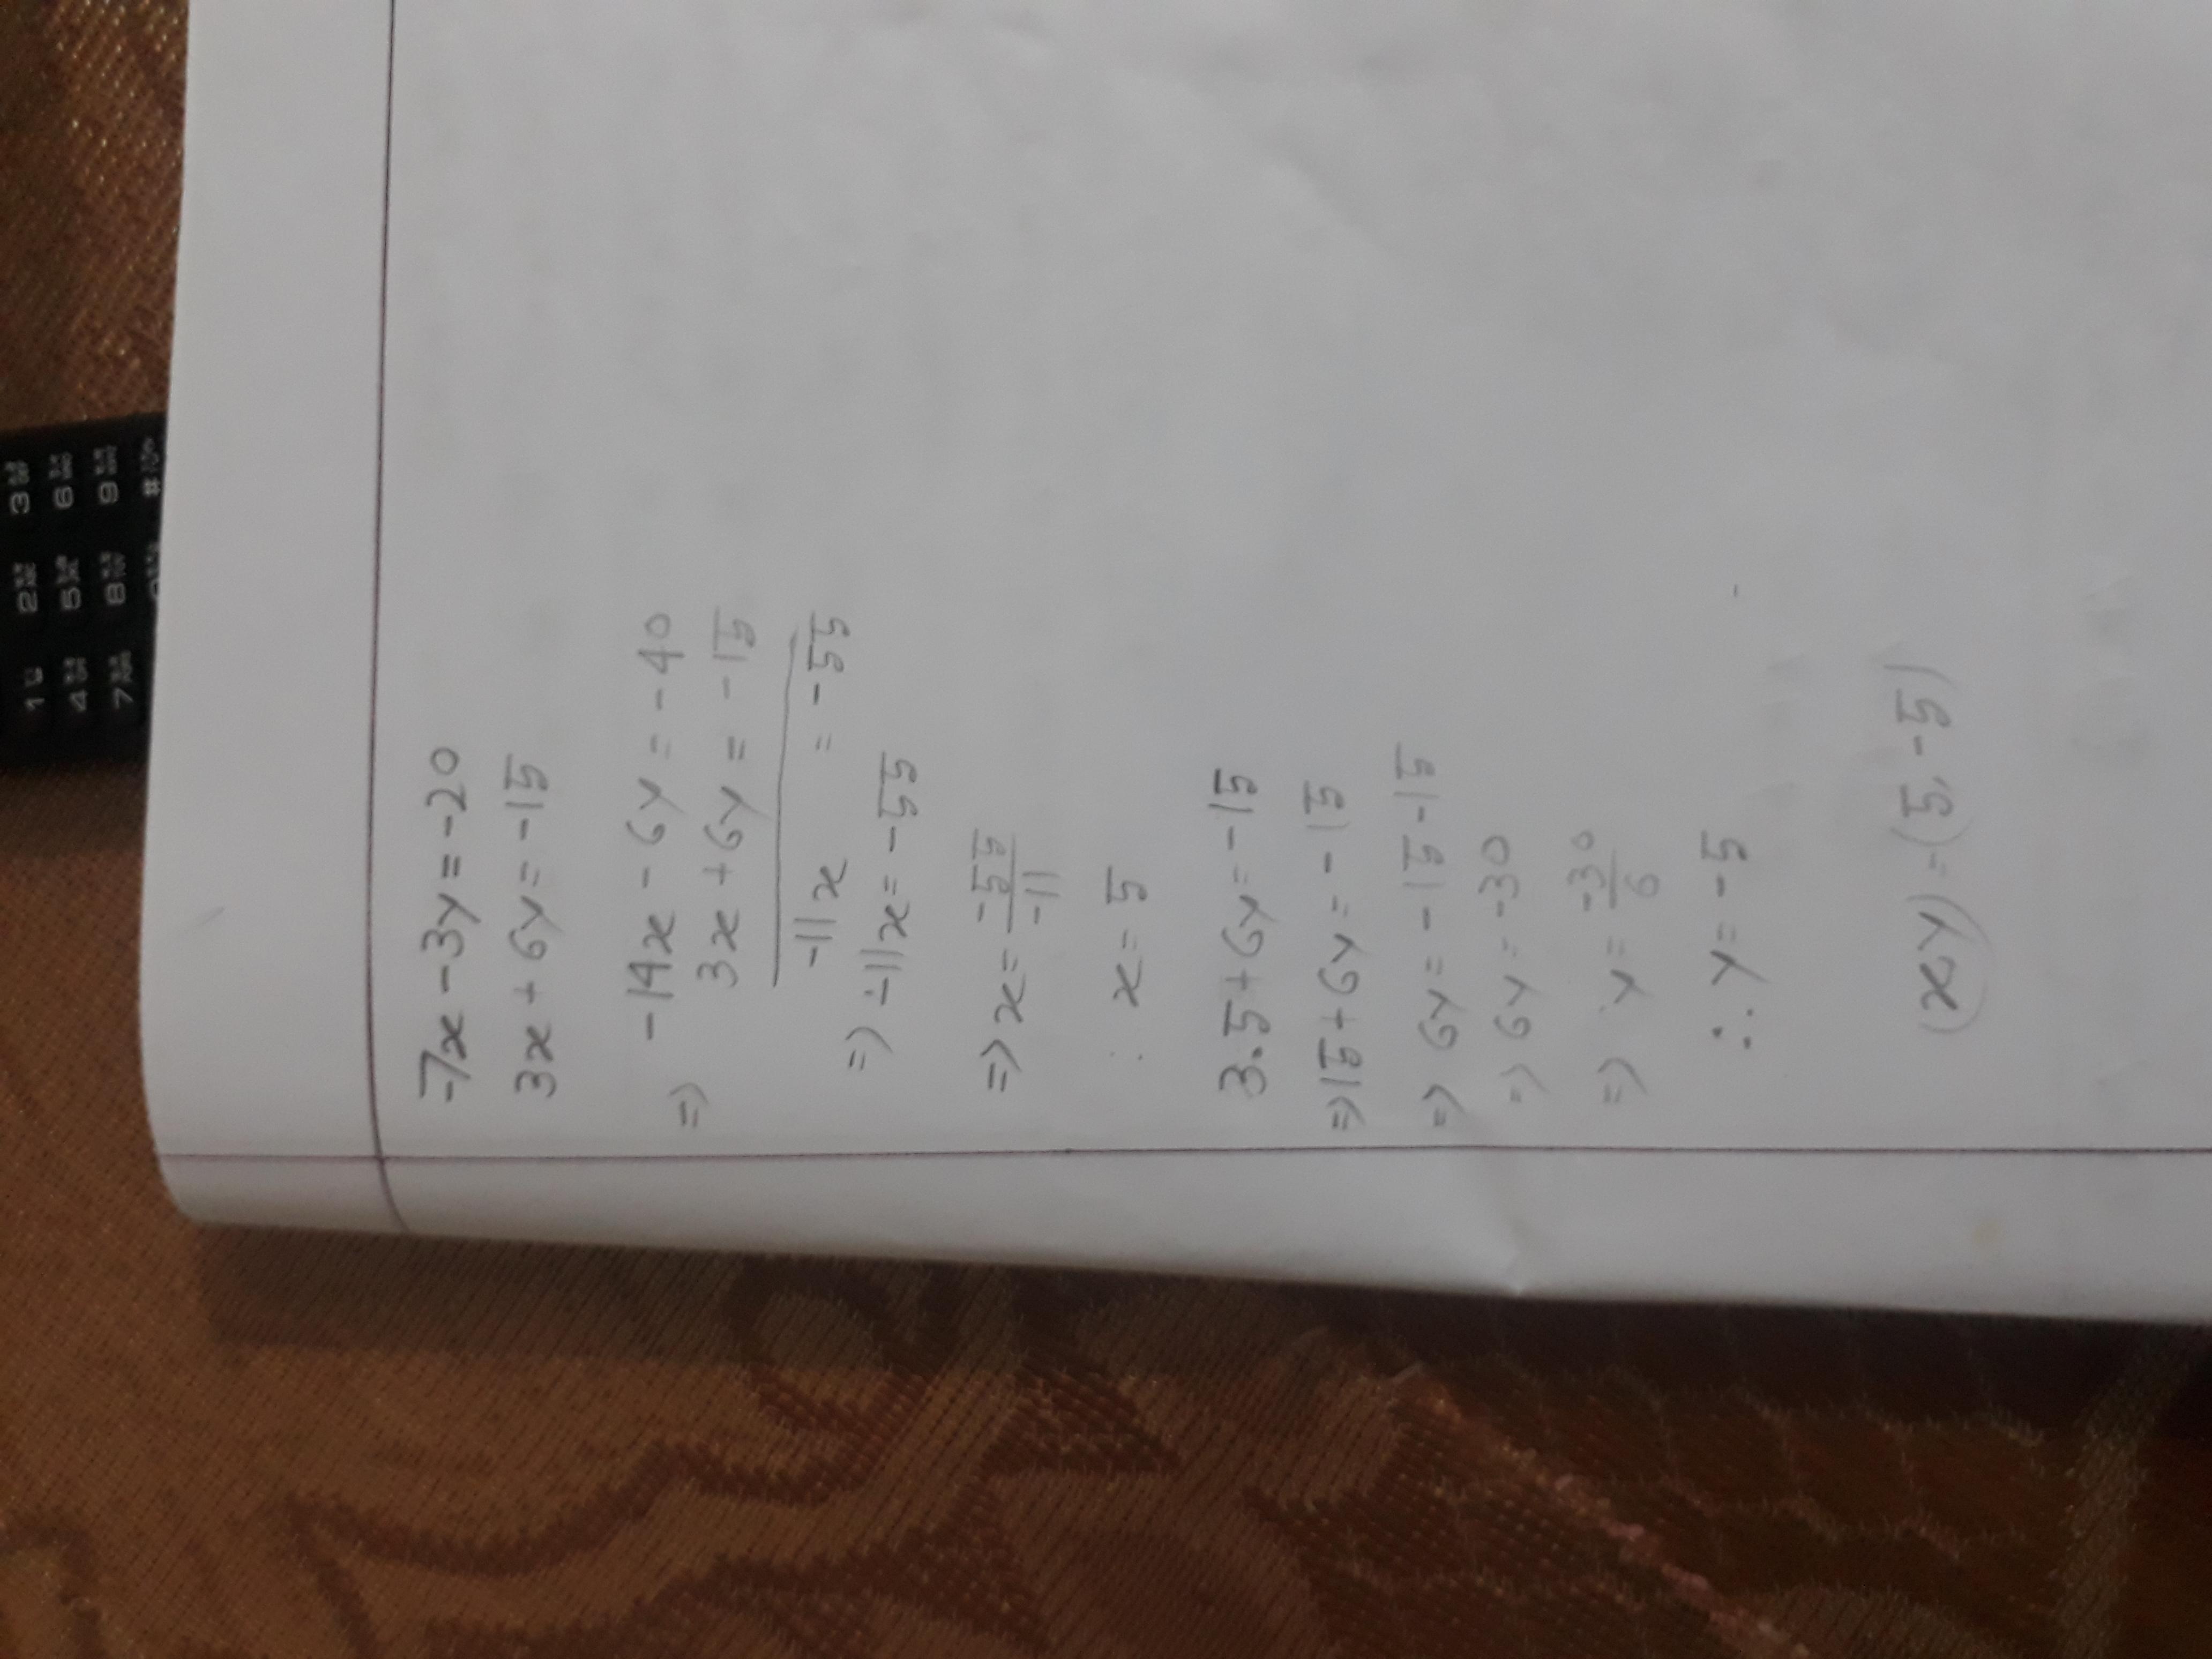 -7x - 3y = -20
3x + 6y = -15
=> -14x - 6y = -40
3x + 6y = -15
-11x = -55
=> -11x = -55
=> x = -55/-11
∴ x = 5
3.5 + 6y = -15
=> 15 + 6y = -15
=> 6y = -15 - 15
=> 6y = -30
=> y = -30/6
∴ y = -5
(x y) = (5, -5)
1 2 ABC 3 DEF
4 GHI 5 JKL 6 MNO
7 8 TUV 9
#